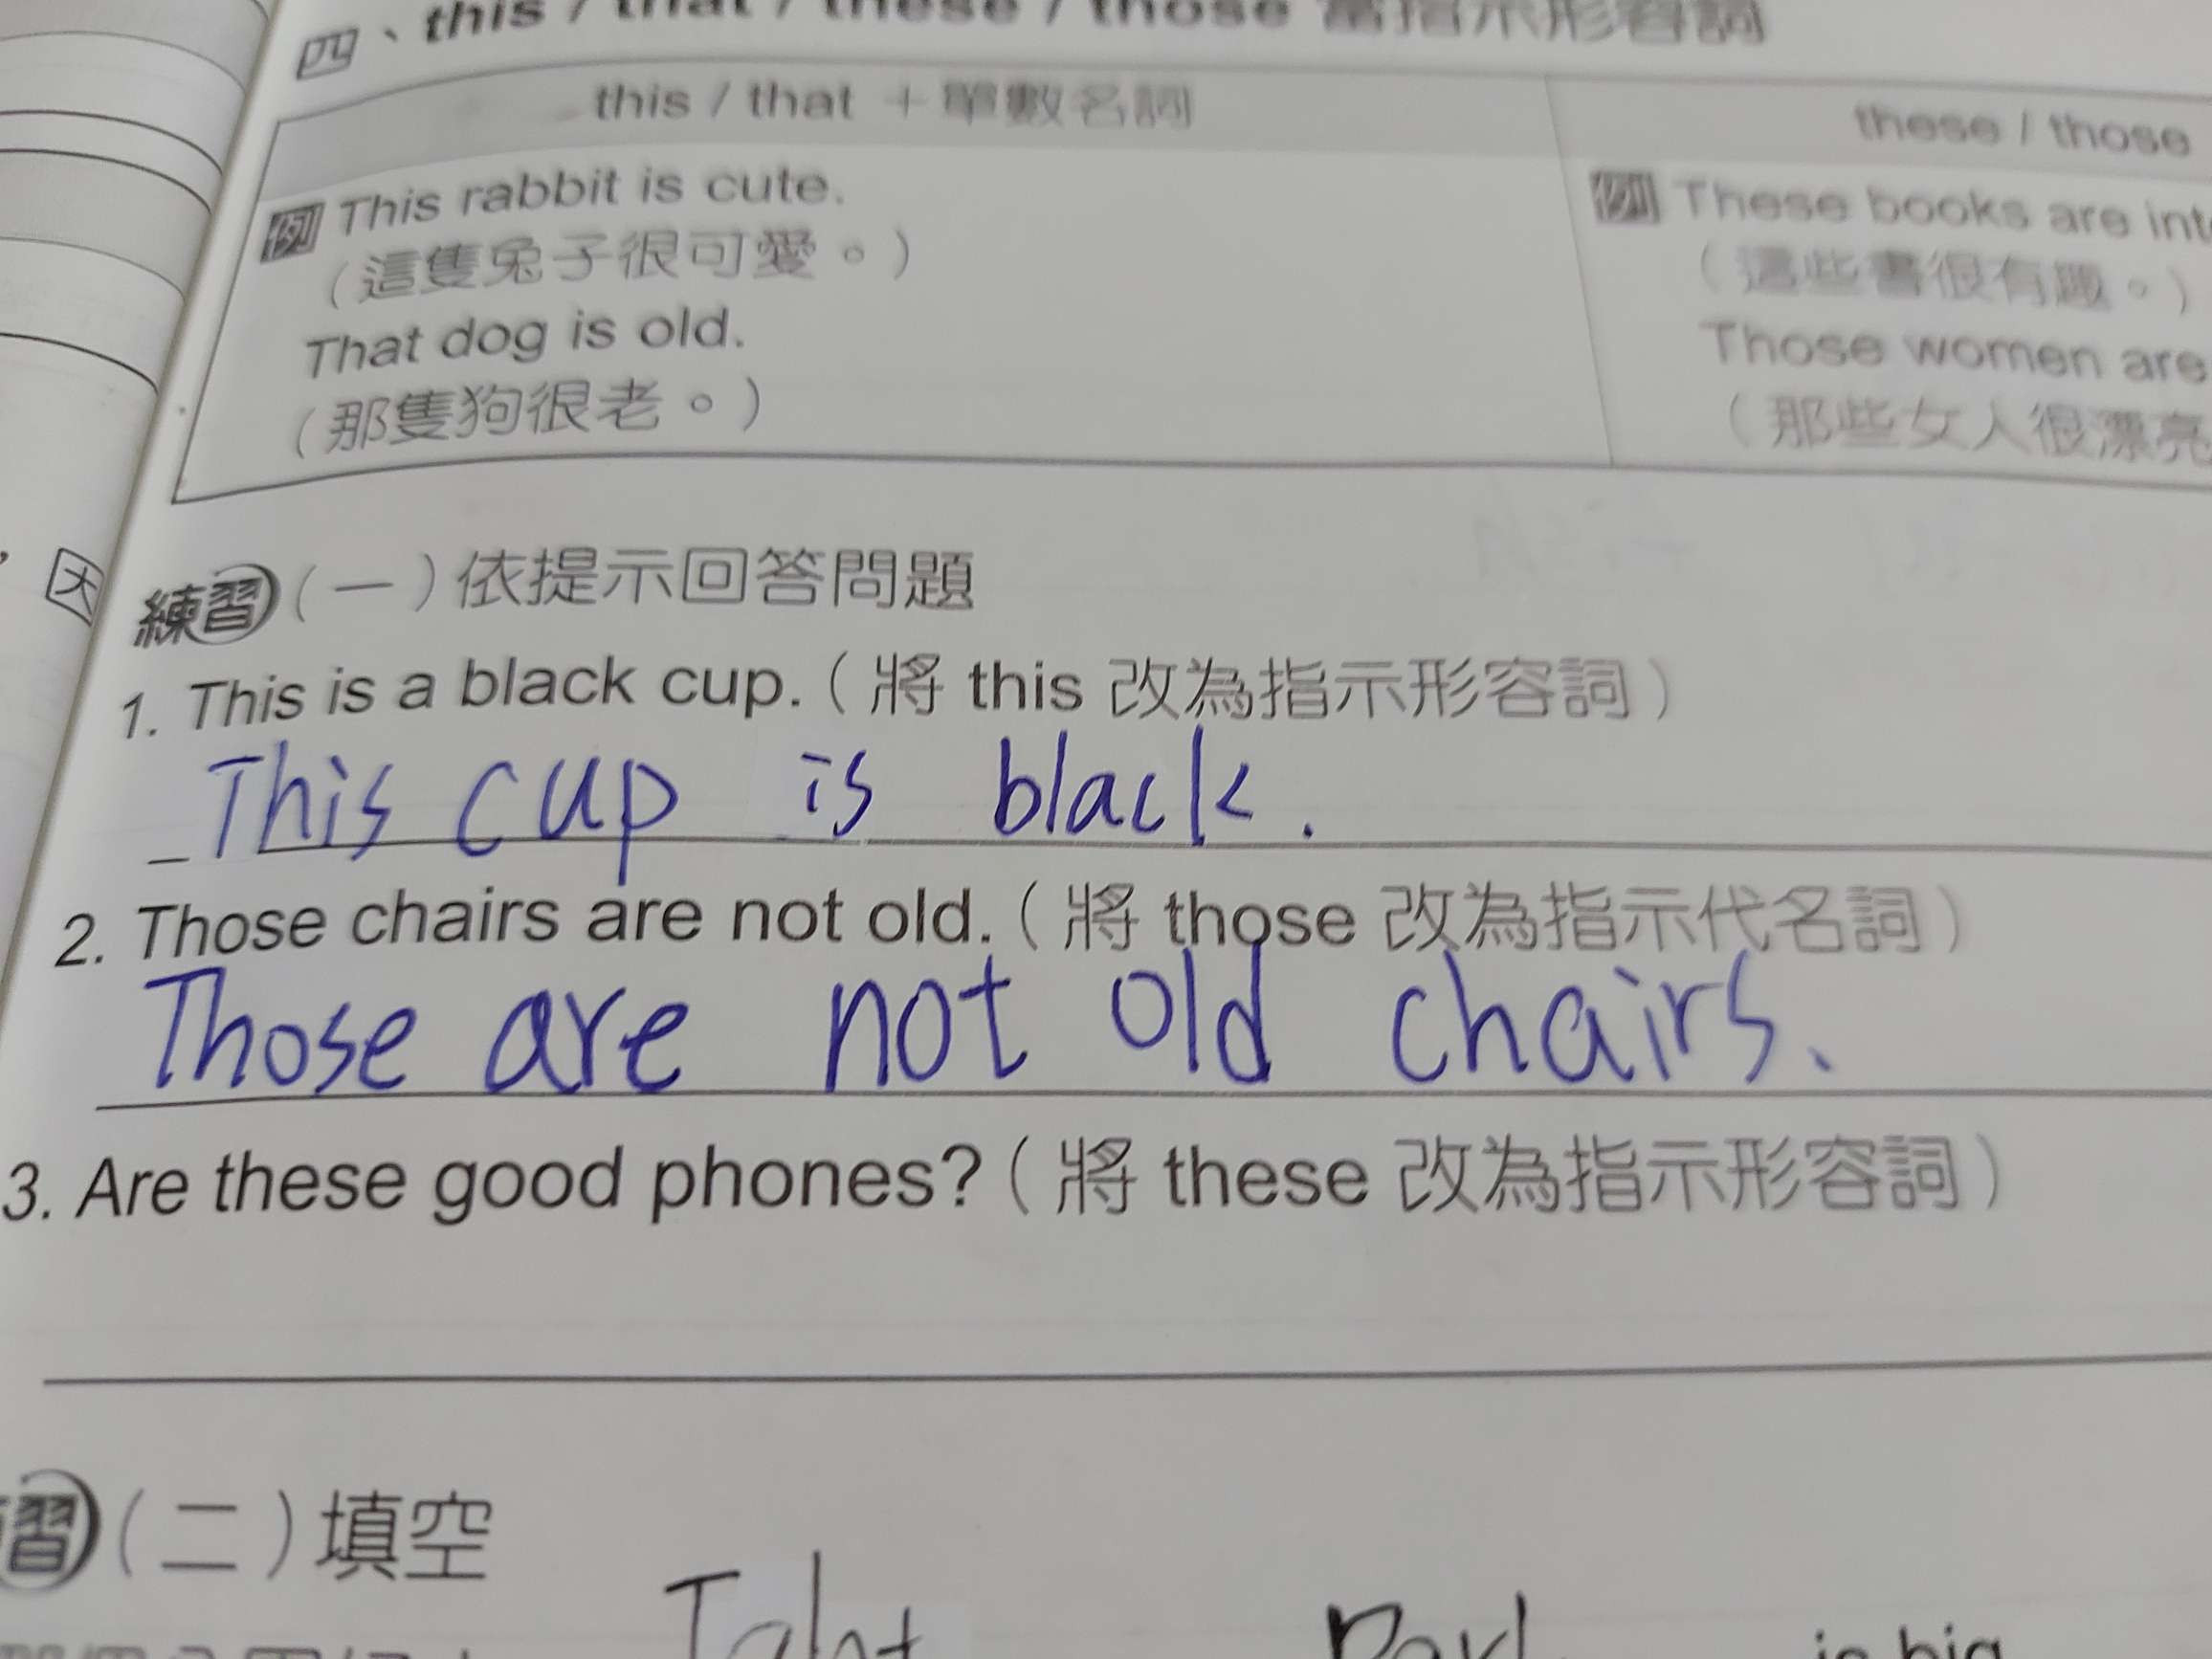 四、this / that / these / those 當指示形容詞
this / that ＋單數名詞
these / those
例 This rabbit is cute.
（這隻兔子很可愛。）
That dog is old.
（那隻狗很老。）
例 These books are int
（這些書很有趣。）
Those women are
（那些女人很漂亮
大
練習（一）依提示回答問題
1. This is a black cup.（將 this 改為指示形容詞）
This cup is black.
2. Those chairs are not old.（將 those 改為指示代名詞）
Those are not old chairs.
3. Are these good phones?（將 these 改為指示形容詞）
習（二）填空
is big